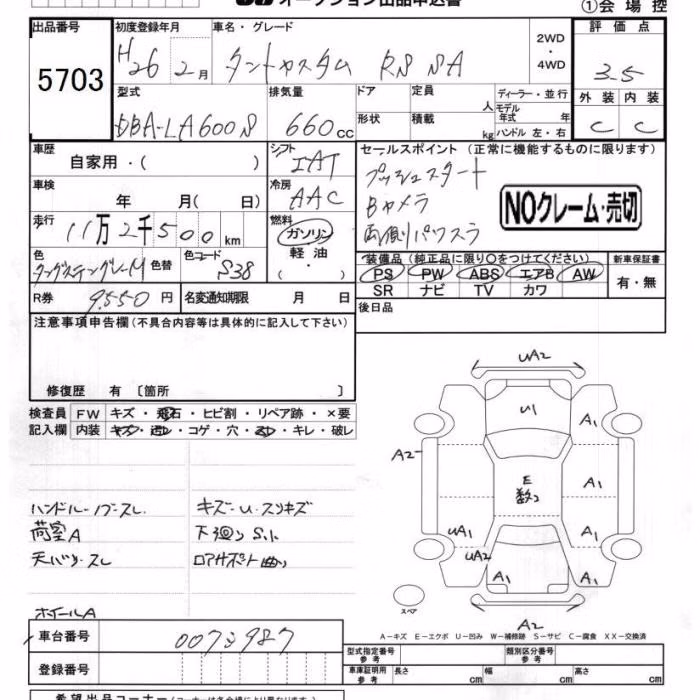 オークション出品申込書
①会場控
出品番号
5703
初度登録年月
H26 2月
車名・グレード
タントカスタム RS SA
2WD
・
4WD
評価点
3.5
外装 内装
C C
型式
DBA-LA600S
排気量
660cc
ドア
形状
定員
人
積載
kg
ディーラー・並行
モデル年式 年
ハンドル 左・右
車歴
自家用・( )
シフト
IAT
車検
年 月( 日)
冷房
AAC
走行
11万2千500km
燃料
ガソリン
・
軽油
・
( )
色
タングステングレーM
色替
色コード
S38
R券
9550円
名変通知期限 月 日
セールスポイント (正常に機能するものに限ります)
プッシュスタート
Bカメラ
両側パワスラ
NOクレーム・売切
装備品(純正品に限り○をつけてください)
PS PW ABS エアB AW
SR ナビ TV カワ
新車保証書
有・無
後日品
注意事項申告欄(不具合内容等は具体的に記入して下さい)
修復歴 有 〔箇所 〕
検査員
記入欄
FW キズ・飛石・ヒビ割・リペア跡・×要
内装 キズ・・コゲ・穴・・キレ・破レ
ハンドル・ノブ-スレ
荷室A
天バリ-スレ
ホイールA
キズ-U-スリキズ
下廻りS.C
ロアサポート曲り
UA2
U1
A1
A2
E
数コ
A1
UA1
A1
UA2
A1
A1
スペア
A2
A-キズ E-エクボ U-凹み W-補修跡 S-サビ C-腐食 XX-交換済
車台番号
0073987
登録番号
型式指定番号
参考
類別区分番号
参考
車庫証明用
参考
長さ cm
幅 cm
高さ cm
希望出品コーナー(コーナーは各会場により異なります)